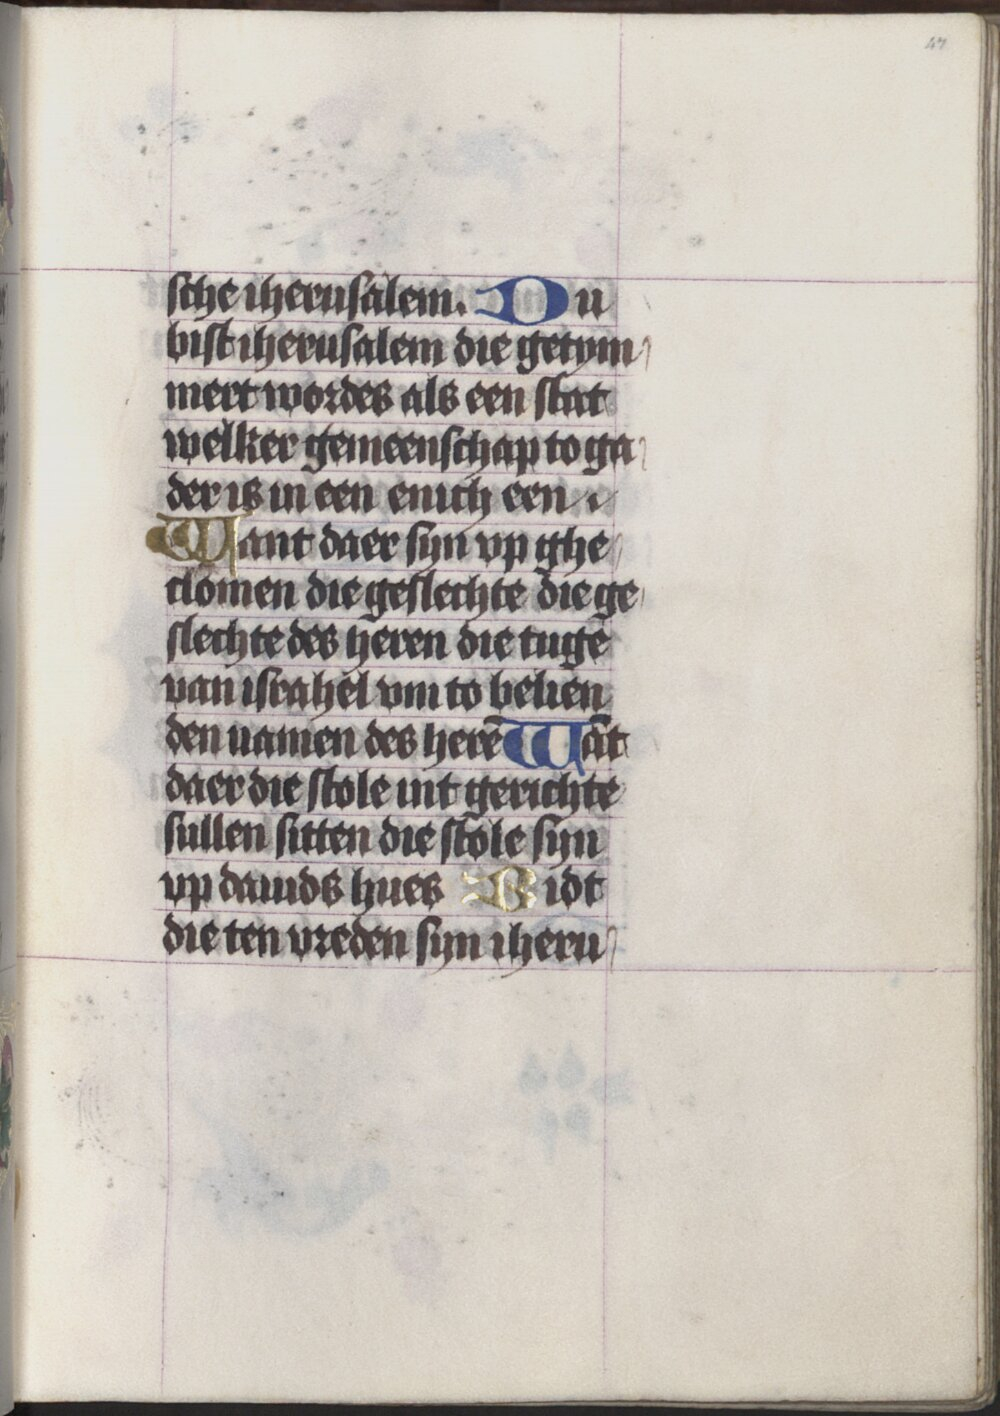 47
sche iherusalem. Du
bist iherusalem die getym
mert wordes als een stat
welker gemeenschap to ga
der is in een enich een
Want daer syn vp ghe
clomen die geslechte die ge
slechte des heren die tuge
van israhel vm to belien
den namen des herē Wāt
daer die stole int gerichte
sullen sitten die stole syn
vp dauids hues Bidt
die ten vreden syn iheru